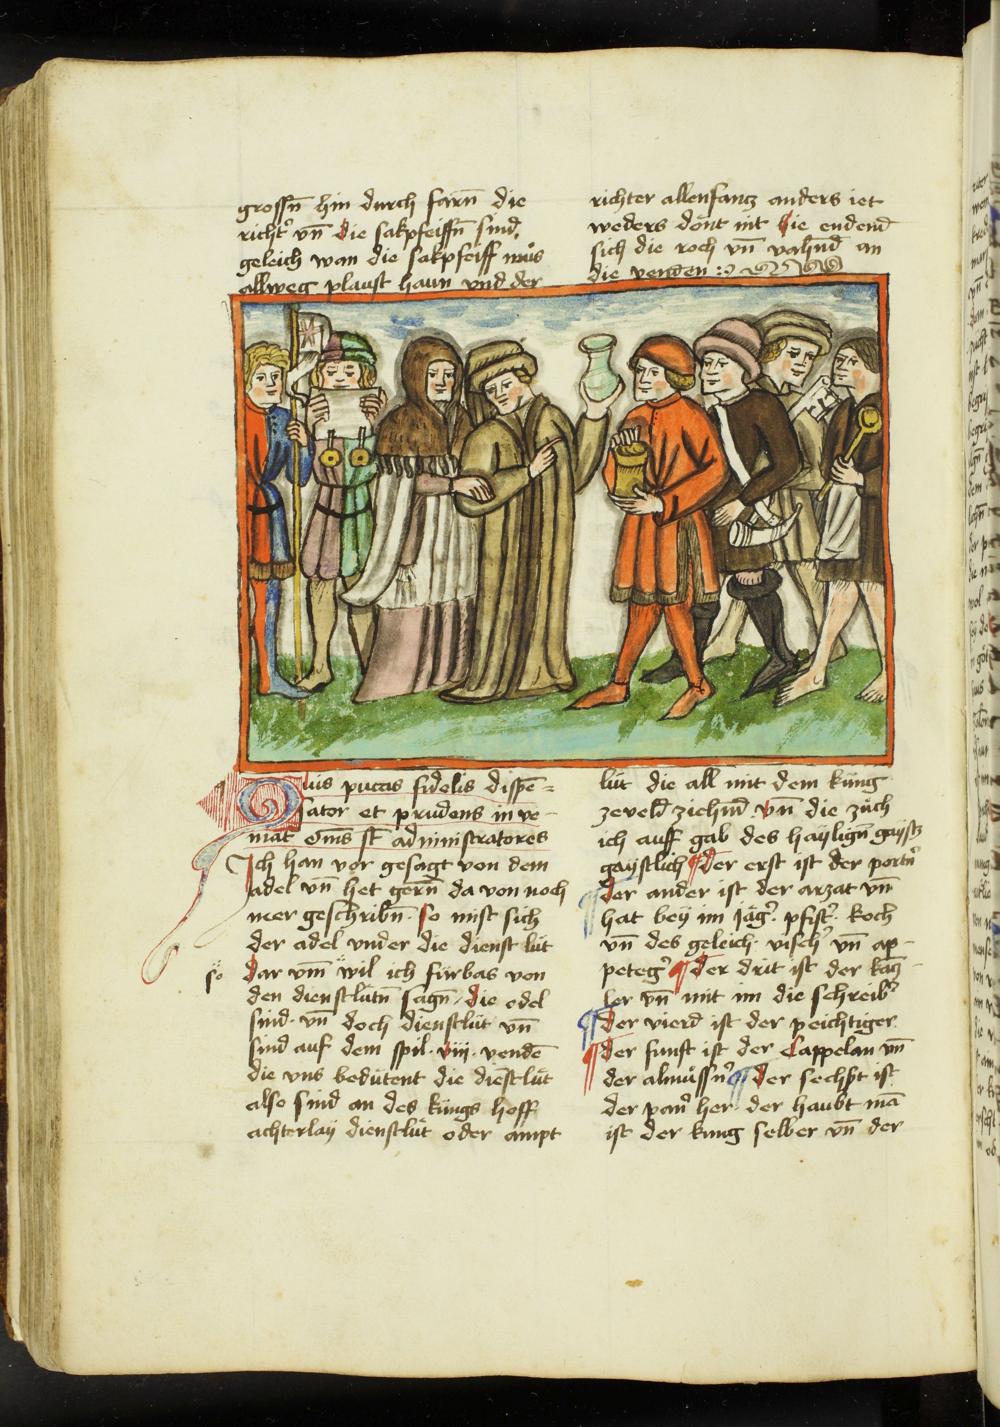 grossn̄ hin durch farn̄ die
richtˀ vn̄ die sakpfeiffn̄ sind,
geleich wan die sakpfeiff můs
allweg plaust haun vnd der
richter allenfancz anders iet
weders dönt nit hie endend
sich die roch vn̄ vahnd an
die venden
Quis putas fidelis dispē=
sator et prudens in ve-
niat Om̄s st̄ administratores
Ich han vor gesagt von dem
adel vn̄ het gern̄ da von noch
mer geschribn̄. so mist sich
der adel vnder die dienst lüt
so
dar vm̄ wil ich fürbas von
den dienstlütn̄ sagn̄. die edel
sind. vn̄ doch dienstlüt vn̄
sind auf dem spil. viij. vendē
die vns bedütent die diēstlüt
also sind an des küngs hoff
achterlaÿ dienstlüt oder ampt
lüt die all mit dem küng
ze veld ziehnd. vn̄ die zůch
ich auff gab des haÿlign̄ gaÿstz
gaÿstlich ¶ der erst ist der portnˀ
¶ der ander ist der arzat vn̄
hat beÿ im Jägˀ. pfistˀ. koch
vn̄ des geleich. vischˀ vn̄ ap-
petegˀ ¶ der drit ist der kācz
ler vn̄ mit im die schreibˀ
¶ der vierd ist der peichtiger
¶ der funft ist der Cappelan vn̄
der almůssnˀ ¶ der sechst ist
der panˀ her. der haubt mā
ist der küng selber vn̄ der